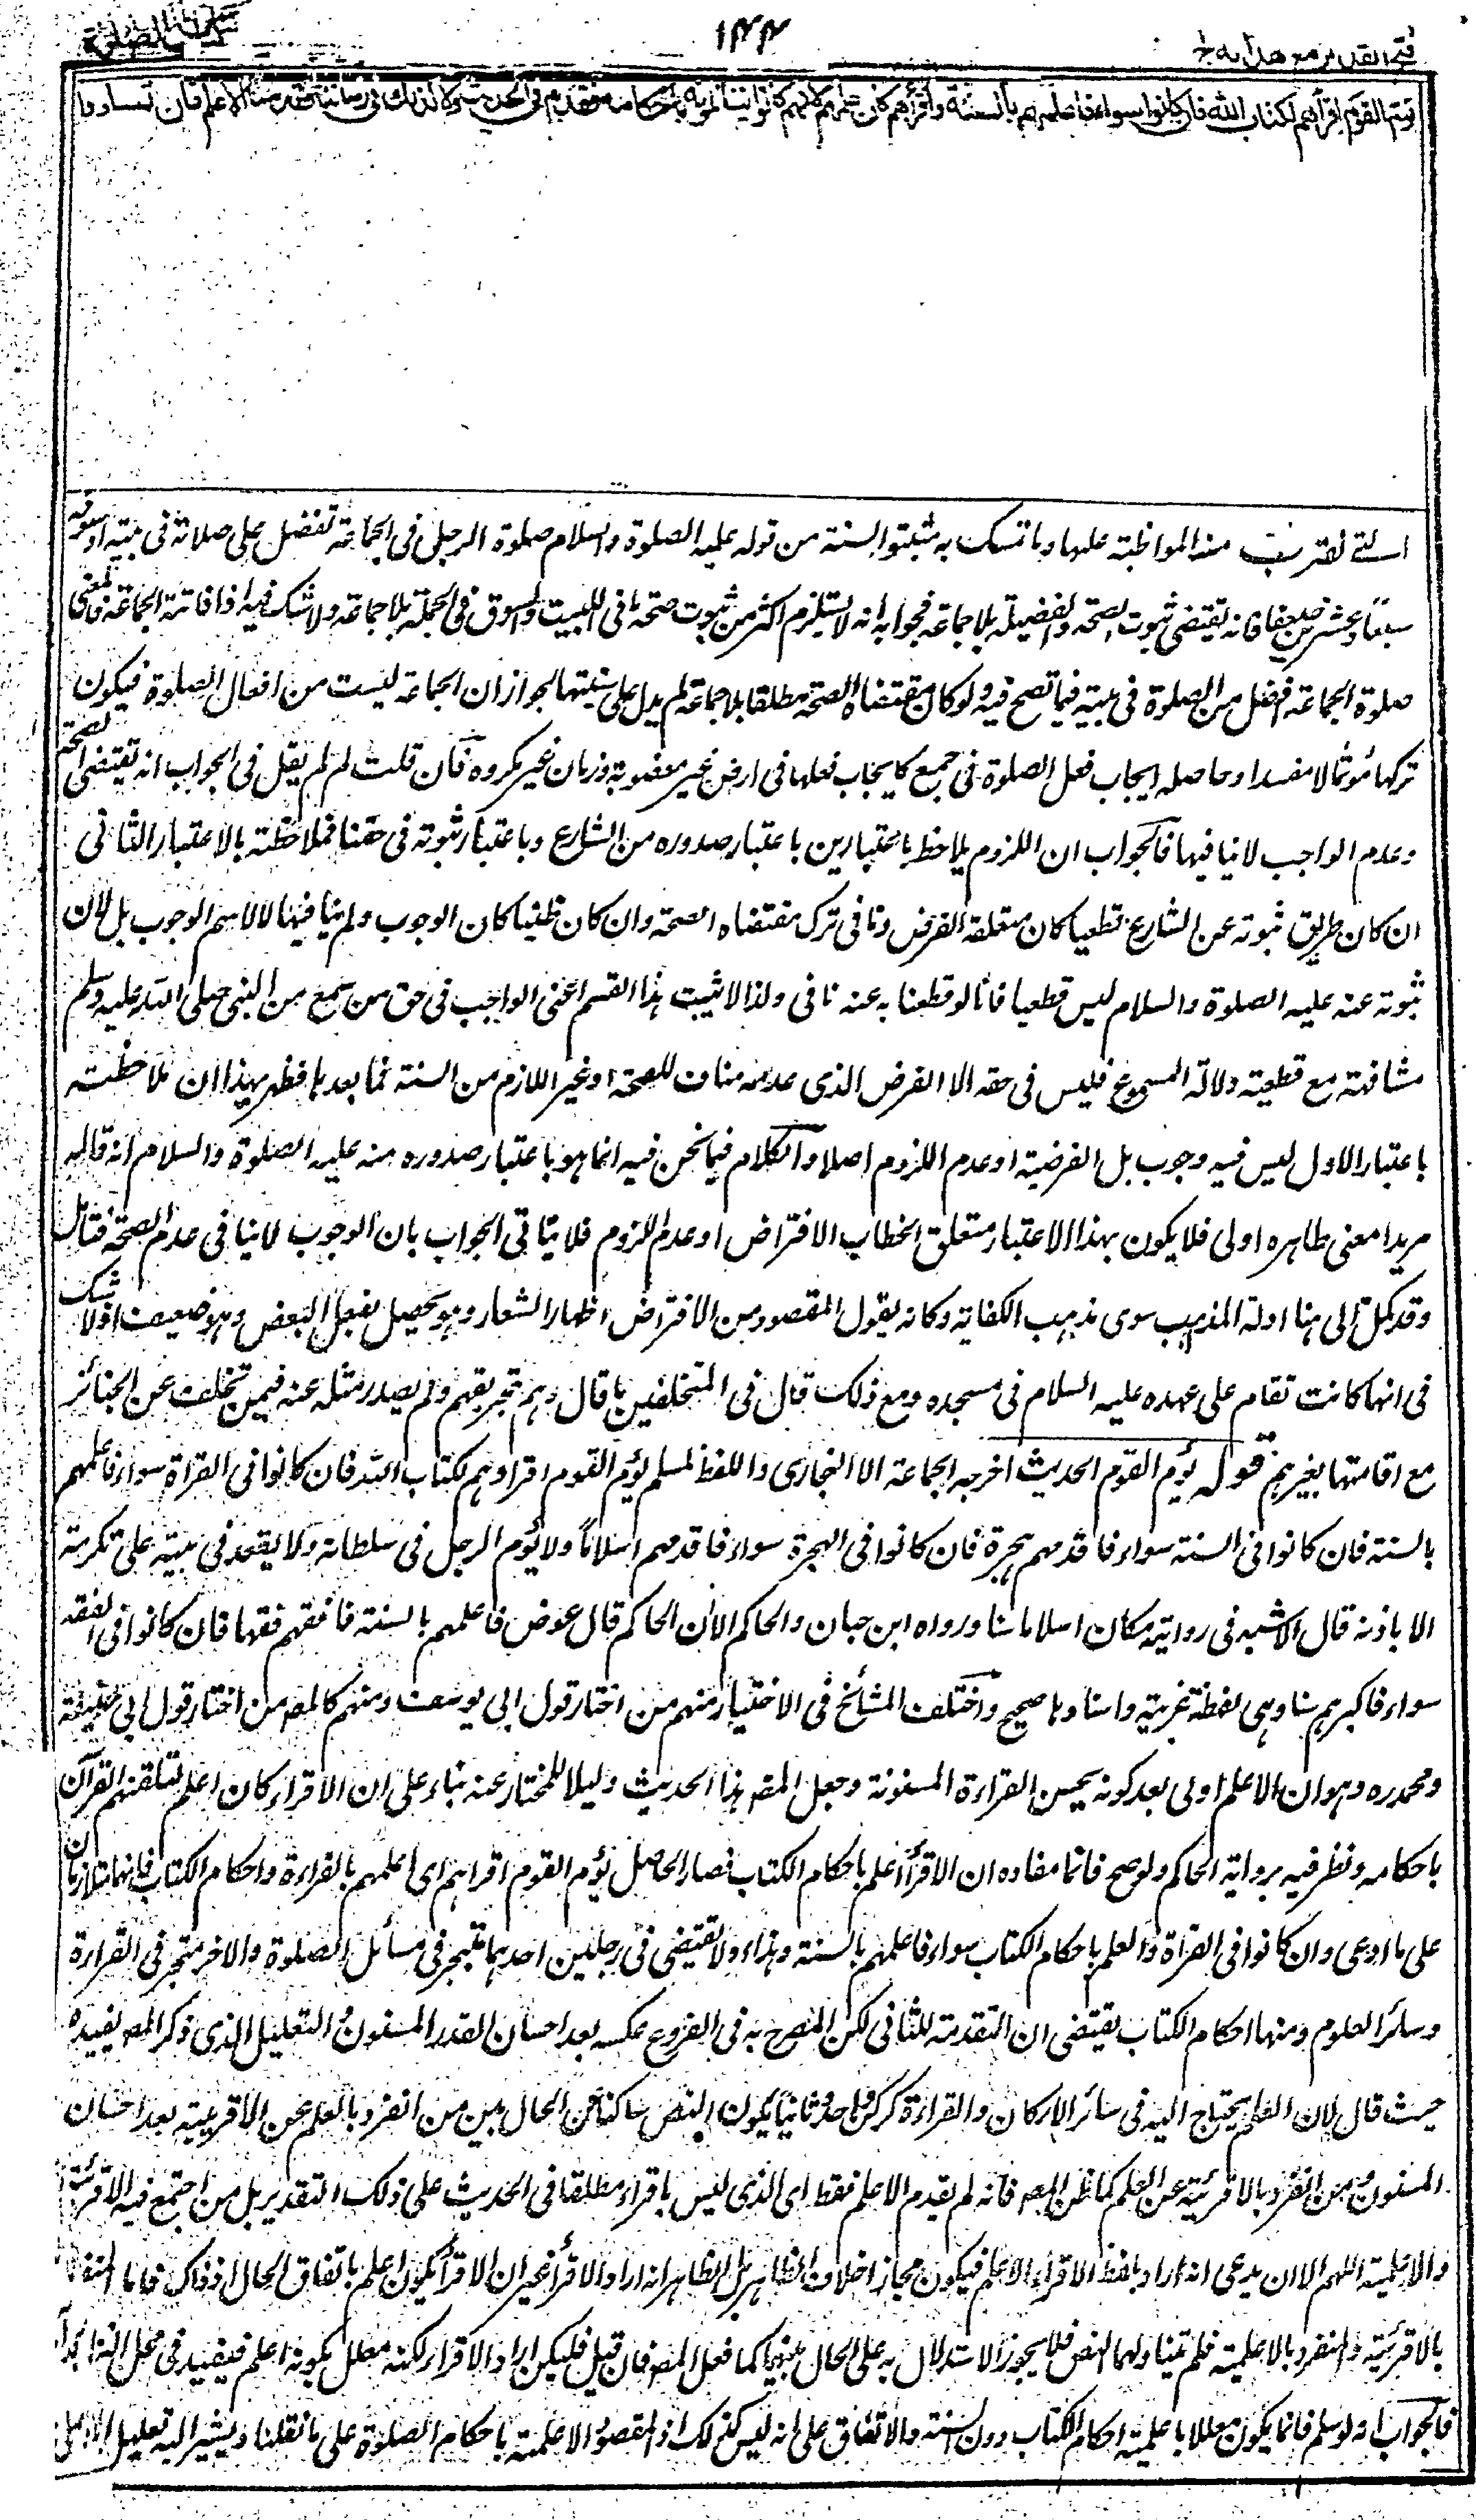 فتح القدير مع هدايه ج١
١٤٤
كتاب الصلوة
يؤم القوم اقرأهم لكتاب الله فان كانوا سواء فاعلمهم بالسنة واقرأهم كان اعلمهم لانهم كانوا يتلقونه باحكامه فقدم في الحديث ولا كذلك في زماننا فقدمنا الاعلم فان تساووا
التى تقترن منه المواظبة عليها وما تمسك به مثبتوا السنة من قوله عليه الصلوة والسلام صلوة الرجل فى الجماعة تفضل على صلاته فى بيته او سوقه
سبعا وعشرين ضعفا فانه يقتضى ثبوت الصحة والفضيلة بلا جماعة فجوابه انه لا يستلزم اكثر من ثبوت صحة ما فى البيت والسوق فى الجملة بلا جماعة ولا شك فيه اذا فاتته الجماعة فالمعنى
صلوة الجماعة افضل من الصلوة فى بيته فيما تصح فيه ولو كان مقتضاه الصحة مطلقا بلا جماعة لم يدل على سنيتها لجواز ان الجماعة ليست من افعال الصلوة فيكون
تركها مؤثما لا مفسدا وحاصله ايجاب فعل الصلوة فى جمع كايجاب فعلها فى ارض غير مغصوبة وزمان غير مكروه فان قلت لم لم يقل فى الجواب انه يقتضى الصحة
وعدم الواجب لا ينافيها فالجواب ان اللزوم يلاحظ باعتبارين باعتبار صدوره من الشارع وباعتبار ثبوته فى حقنا فملاحظته بالاعتبار الثانى
ان كان طريق ثبوته عن الشارع قطعيا كان متعلقه الفرض ونافى ترك مقتضاه الصحة وان كان ظنيا كان الوجوب ولم ينافيها لا لاسم الوجوب بل لان
ثبوته عنه عليه الصلوة والسلام ليس قطعيا فانا لو قطعنا به عنه نافى ولذا لا يثبت هذا القسم اعنى الواجب فى حق من سمع من النبى صلى الله عليه وسلم
مشافهة مع قطعية دلالة المسموع فليس فى حقه الا الفرض الذى عدمه مناف للصحة او غير اللازم من السنة فما بعدها فظهر بهذا ان ملاحظته
باعتبار الاول ليس فيه وجوب بل الفرضية او عدم اللزوم اصلا والكلام فيما نحن فيه انما هو باعتبار صدوره منه عليه الصلوة والسلام انه قاله
مريدا معنى ظاهره اولى فلا يكون بهذا الاعتبار متعلق الخطاب الا افتراض او عدم اللزوم فلا يتاتى الجواب بان الوجوب لا ينافى عدم الصحة فتأمل
وقد كمل الى هنا ادلة المذهب سوى مذهب الكفاية وكانه يقول المقصود من الافتراض اظهار الشعار وهو يحصل بفعل البعض وهو ضعيف اذ لا شك
فى انها كانت تقام على عهده عليه السلام فى مسجده ومع ذلك قال فى المتخلفين ما قال وهم بتحريقهم ولم يصدر مثله عنه فيمن تخلف عن الجنائز
مع اقامتها بغيرهم قوله يؤم القوم الحديث اخرجه الجماعة الا البخارى واللفظ لمسلم يؤم القوم اقراوهم لكتاب الله فان كانوا فى القراة سواء فاعلمهم
بالسنة فان كانوا فى السنة سواء فاقدمهم هجرة فان كانوا فى الهجرة سواء فاقدمهم اسلاما ولا يؤم الرجل فى سلطانه ولا يقعد فى بيته على تكرمته
الا باذنه قال الاشج فى رواية مكان اسلاما سنا ورواه ابن حبان والحاكم الا ان الحاكم قال عوض فاعلمهم بالسنة فافقههم فقها فان كانوا فى الفقه
سواء فاكبرهم سنا وهى لفظة غريبة واسنادها صحيح واختلف المشائخ فى الاختيار منهم من اختار قول ابى يوسف ومنهم كالمصـ من اختار قول ابى حنيفة
ومحمد ره وهو ان الاعلم اولى بعد كونه يحسن القراءة المسنونة وجعل المصـ هذا الحديث دليلا للمختار عنه بناء على ان الاقراء كان اعلم لتلقنهم القرآن
باحكامه ونظر فيه برواية الحاكم ولو صح فانما مفاده ان الاقرأ اعلم باحكام الكتاب فصار الحاصل يؤم القوم اقراهم اى اعلمهم بالقراءة واحكام الكتاب فانهما متلازمان
على ما ادعى وان كانوا فى القراة والعلم باحكام الكتاب سواء فاعلمهم بالسنة وهذا اولا يقتضى فى رجلين احدهما متبحر فى مسائل الصلوة والاخر متبحر فى القراءة
وسائر العلوم ومنها احكام الكتاب يقتضى ان التقدمة للثانى لكن المصرح به فى الفروع عكسه بعد احسان القدر المسنون والتعليل الذى ذكر المصـ يفيده
حيث قال لان العلم يحتاج اليه فى سائر الاركان والقراءة لركن واحد وثانيا يكون النص ساكتا عن الحال بين من انفرد بالعلم عن الاقرئية بعد احسان
المسنون ومن انفرد بالاقرئية عن العلم كما ظن المصـ فانه لم يقدم الاعلم فقط اى الذى ليس باقراء مطلقا فى الحديث على ذلك التقدير بل من اجتمع فيه الاقرئية
والاعلمية اللهم الا ان يدعى انه اراد بلفظ الاقراء الاعلم فيكون مجازا خلاف الظاهر بل الظاهر انه اراد الاقرأ غير ان الاقرأ يكون اعلم باتفاق الحال اذ ذاك فاما المنفرد
بالاقرئية والمنفرد بالاعلمية فلم يتناولهما النص فلا يجوز الاستدلال به على الحال بينهما كما فعل المصـ فان قيل فليكن اراد الاقراء لكنه معلل بكونه اعلم فيفيد فى محل النزاع
فالجواب انه لو سلم فانما يكون معللا باعلمية احكام الكتاب دون السنة والاتفاق على انه ليس كذلك اذ المقصود الاعلمية باحكام الصلوة على ما نقلنا ويشير اليه تعليل